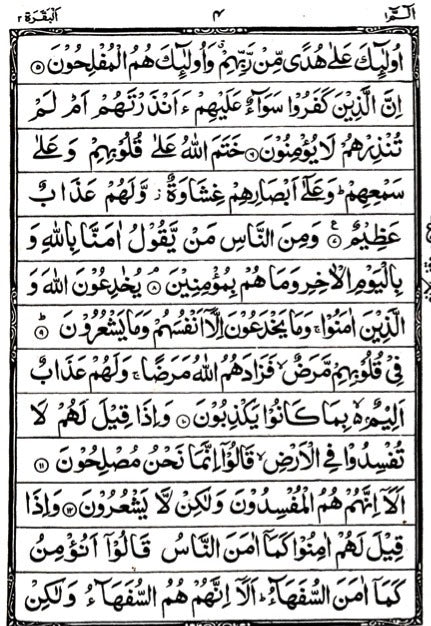 الٓمّٓ ١ ٤ اَلْبَقَرَة ٢
اُولٰٓئِكَ عَلٰى هُدًى مِّنْ رَّبِّهِمْ ۗ وَاُولٰٓئِكَ هُمُ الْمُفْلِحُوْنَ ۝٥
اِنَّ الَّذِيْنَ كَفَرُوْا سَوَآءٌ عَلَيْهِمْ ءَاَنْذَرْتَهُمْ اَمْ لَمْ
تُنْذِرْهُمْ لَا يُؤْمِنُوْنَ ۝٦ خَتَمَ اللهُ عَلٰى قُلُوْبِهِمْ وَ عَلٰى
سَمْعِهِمْ ؕ وَعَلٰٓى اَبْصَارِهِمْ غِشَاوَةٌ ز وَّلَهُمْ عَذَابٌ
عَظِيْمٌ ۝٧ وَمِنَ النَّاسِ مَنْ يَّقُوْلُ اٰمَنَّا بِاللهِ وَ
بِالْيَوْمِ الْاٰخِرِ وَمَا هُمْ بِمُؤْمِنِيْنَ ۝٨ يُخٰدِعُوْنَ اللهَ وَ
الَّذِيْنَ اٰمَنُوْا ۚ وَمَا يَخْدَعُوْنَ اِلَّآ اَنْفُسَهُمْ وَمَا يَشْعُرُوْنَ ۝٩
فِيْ قُلُوْبِهِمْ مَّرَضٌ ۙ فَزَادَهُمُ اللهُ مَرَضًا ۚ وَلَهُمْ عَذَابٌ
اَلِيْمٌۢ ۙ۬ بِمَا كَانُوْا يَكْذِبُوْنَ ۝١٠ وَاِذَا قِيْلَ لَهُمْ لَا
تُفْسِدُوْا فِي الْاَرْضِ ۙ قَالُوْٓا اِنَّمَا نَحْنُ مُصْلِحُوْنَ ۝١١
اَلَآ اِنَّهُمْ هُمُ الْمُفْسِدُوْنَ وَلٰكِنْ لَّا يَشْعُرُوْنَ ۝١٢ وَاِذَا
قِيْلَ لَهُمْ اٰمِنُوْا كَمَآ اٰمَنَ النَّاسُ قَالُوْٓا اَنُؤْمِنُ
كَمَآ اٰمَنَ السُّفَهَآءُ ؕ اَلَآ اِنَّهُمْ هُمُ السُّفَهَآءُ وَلٰكِنْ